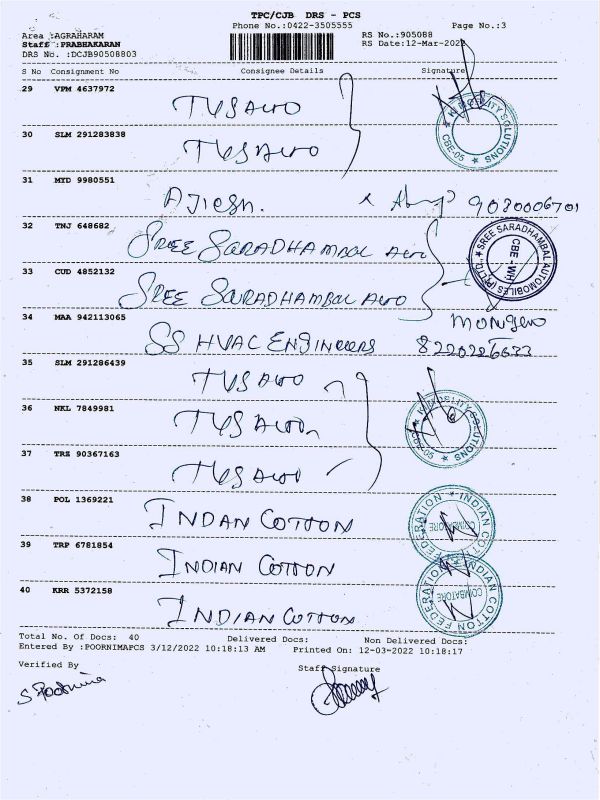 TPC/CJB DRS - PCS
Phone No.:0422-3505555 Page No.:3
Area :AGRAHARAM RS No.:905088
Staff :PRABHAKARAN RS Date:12-Mar-2022
DRS No. :DCJB90508803
S No Consignment No Consignee Details Signature
29 VPM 4637972
TVS Auto
30 SLM 291283838
TVS Auto
CBE-05 SOLUTIONS
31 MYD 9980551
AJIESH.
32 TNJ 648682
SREE SARADHAMBAL Auto
SREE SARADHAMBAL AUTOMOBILES (P) LTD., CBE - WH
33 CUD 4852132
SREE SARADHAMBAL Auto
34 MAA 942113065
SS HVAC ENGINEERS 8220226633
35 SLM 291286439
TVS Auto
36 NKL 7849981
TVS Auto
CBE-05 SOLUTIONS
37 TRZ 90367163
TVS Auto
38 POL 1369221
INDAN COTTON
INDIAN COTTON FEDERATION COIMBATORE
39 TRP 6781854
INDIAN COTTON
40 KRR 5372158
INDIAN COTTON
INDIAN COTTON FEDERATION COIMBATORE
Total No. Of Docs: 40 Delivered Docs: Non Delivered Docs:
Entered By :POORNIMAPCS 3/12/2022 10:18:13 AM Printed On: 12-03-2022 10:18:17
Verified By Staff Signature
S Poornima